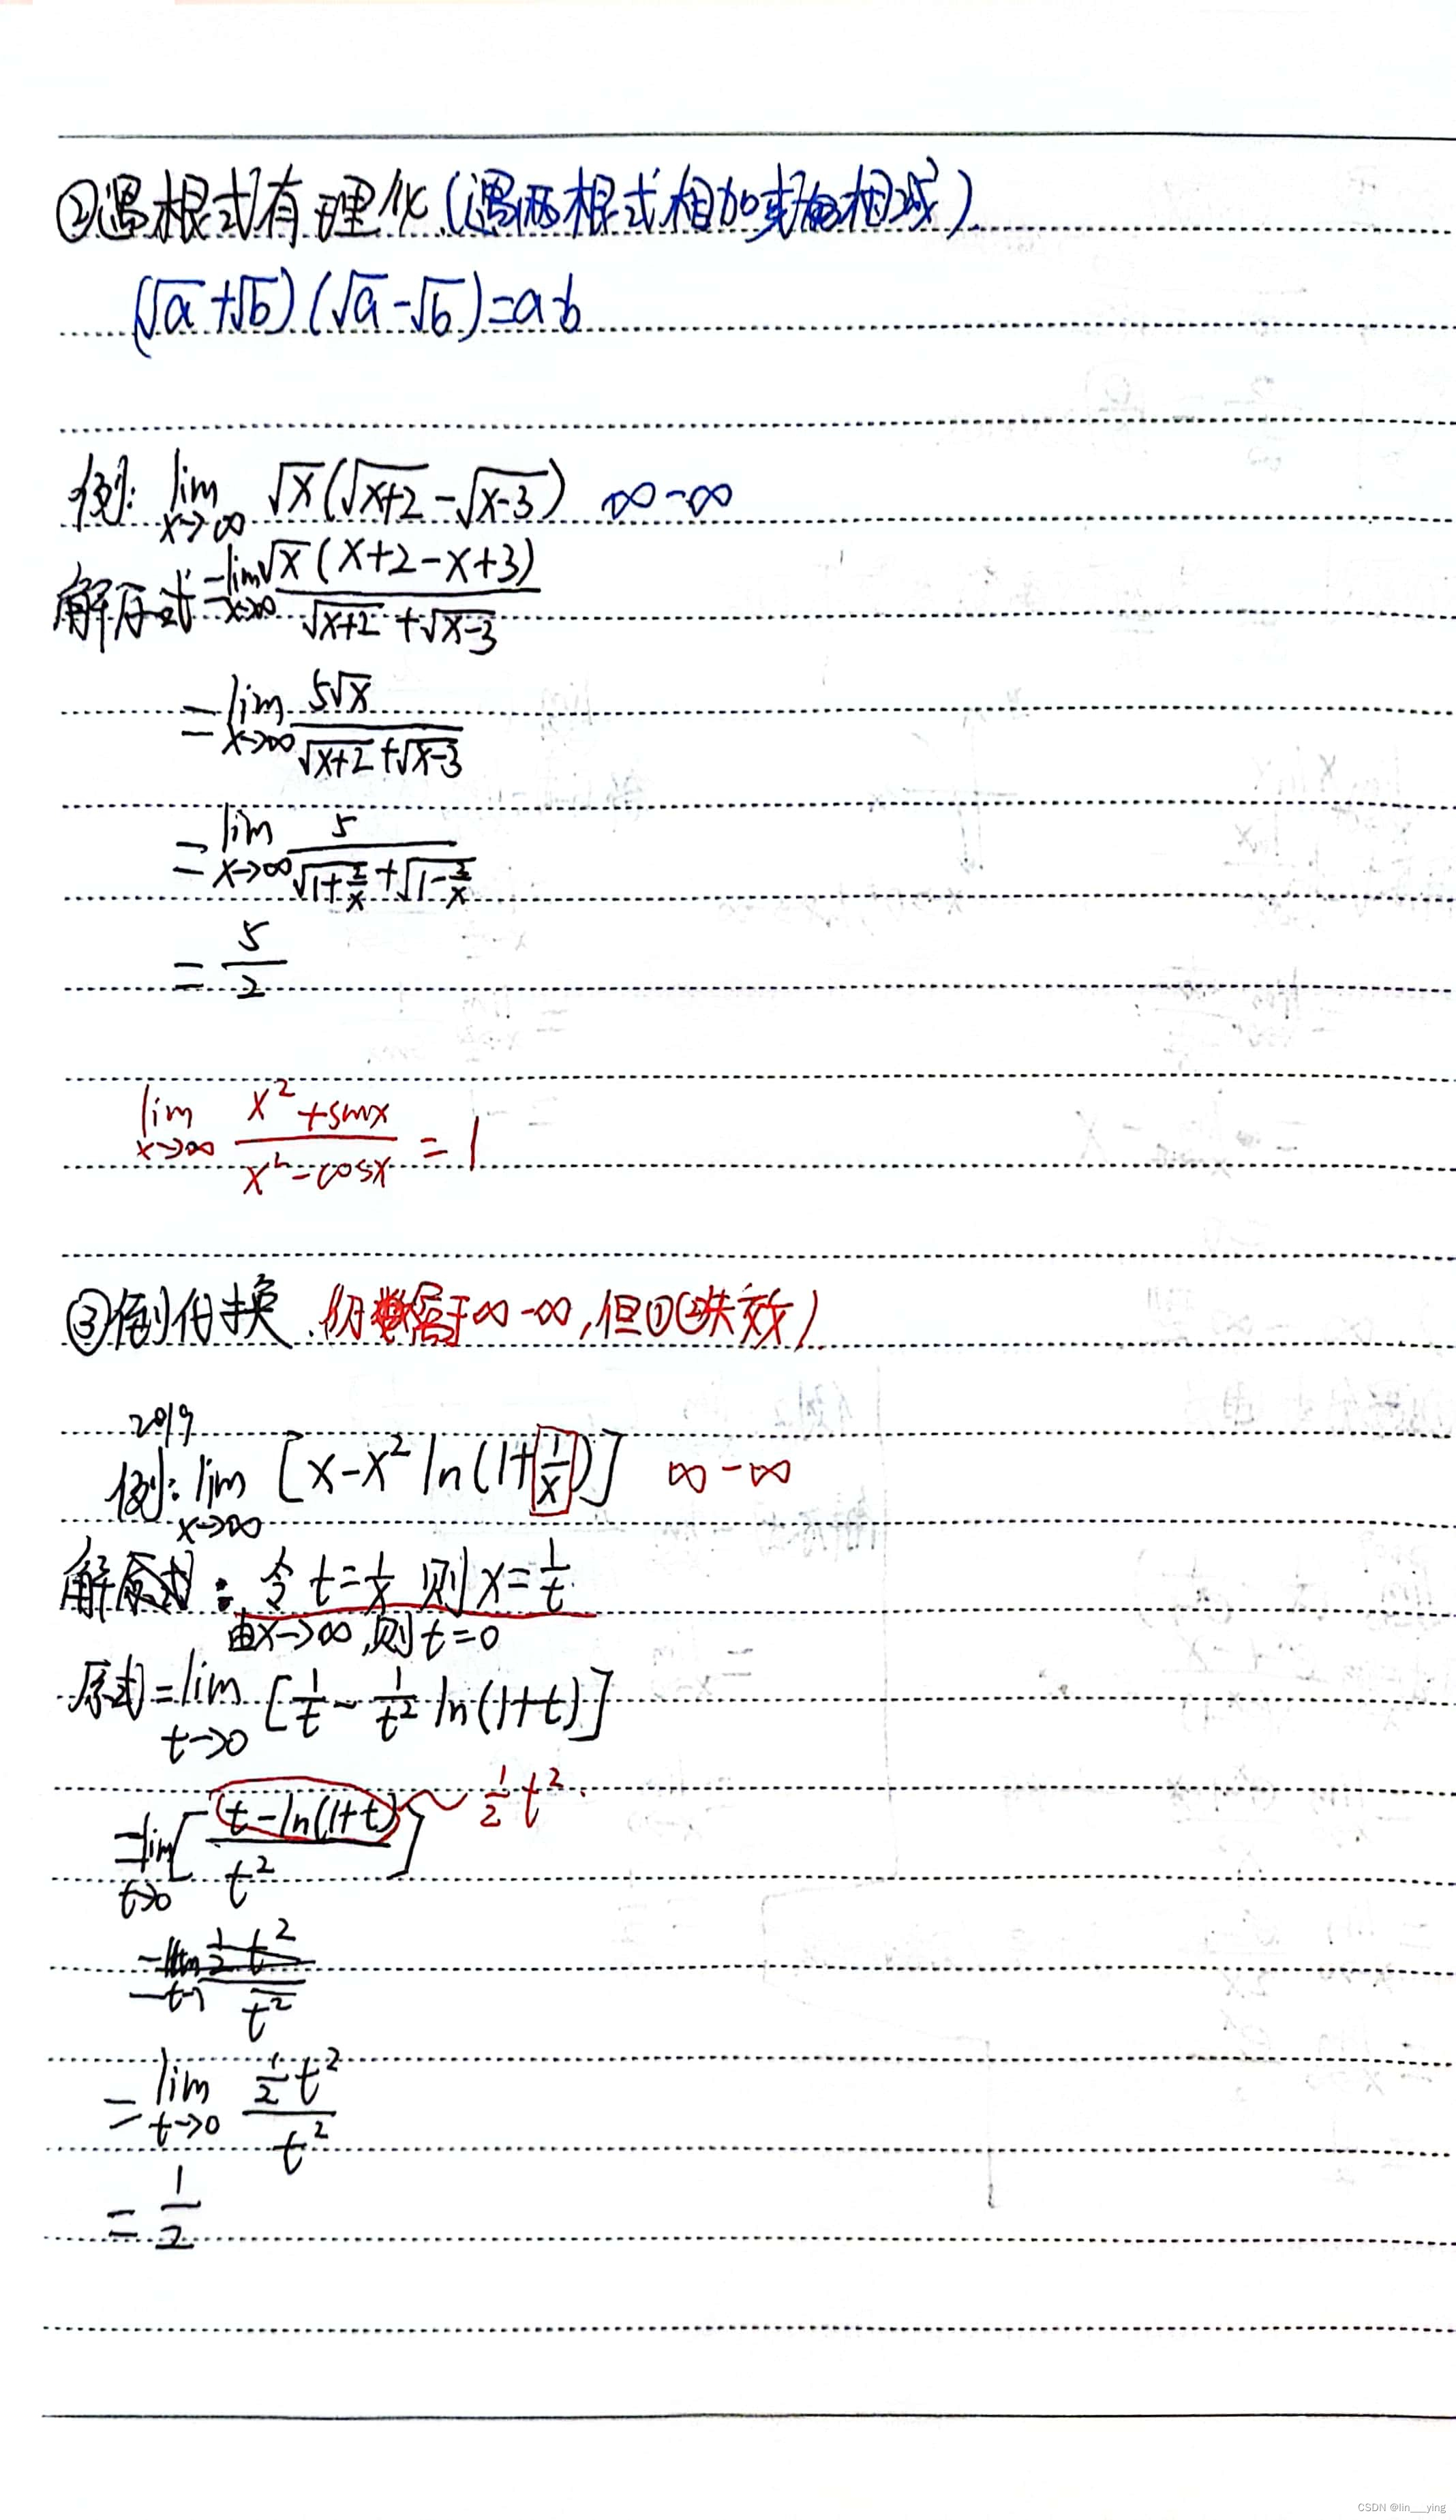 ②遇根式有理化(遇两根式相加或相减)
(√a+√b)(√a-√b)=a-b
例: lim x→∞ √x(√x+2 - √x-3) ∞-∞
解原式=lim x→∞ √x(x+2-x+3) / √x+2 + √x-3
=lim x→∞ 5√x / √x+2 + √x-3
=lim x→∞ 5 / √1+2/x + √1-3/x
= 5/2
lim x→∞ x²+sinx / x²-cosx = 1
③倒代换 属于∞-∞,但①②失效)
2019
例: lim x→∞ [x-x² ln(1+1/x)] ∞-∞
解: 令 t=1/x 则 x=1/t
由x→∞,则t=0
原式=lim t→0 [1/t - 1/t² ln(1+t)]
=lim t→0 [t-ln(1+t) / t²] ~ 1/2 t²
=lim t→ 1/2 t² / t²
=lim t→0 1/2 t² / t²
= 1/2
CSDN @lin___ying